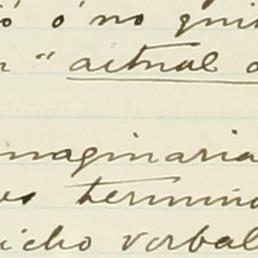 ó ó no qui
" actual
imaginaria
termino
icho verbal